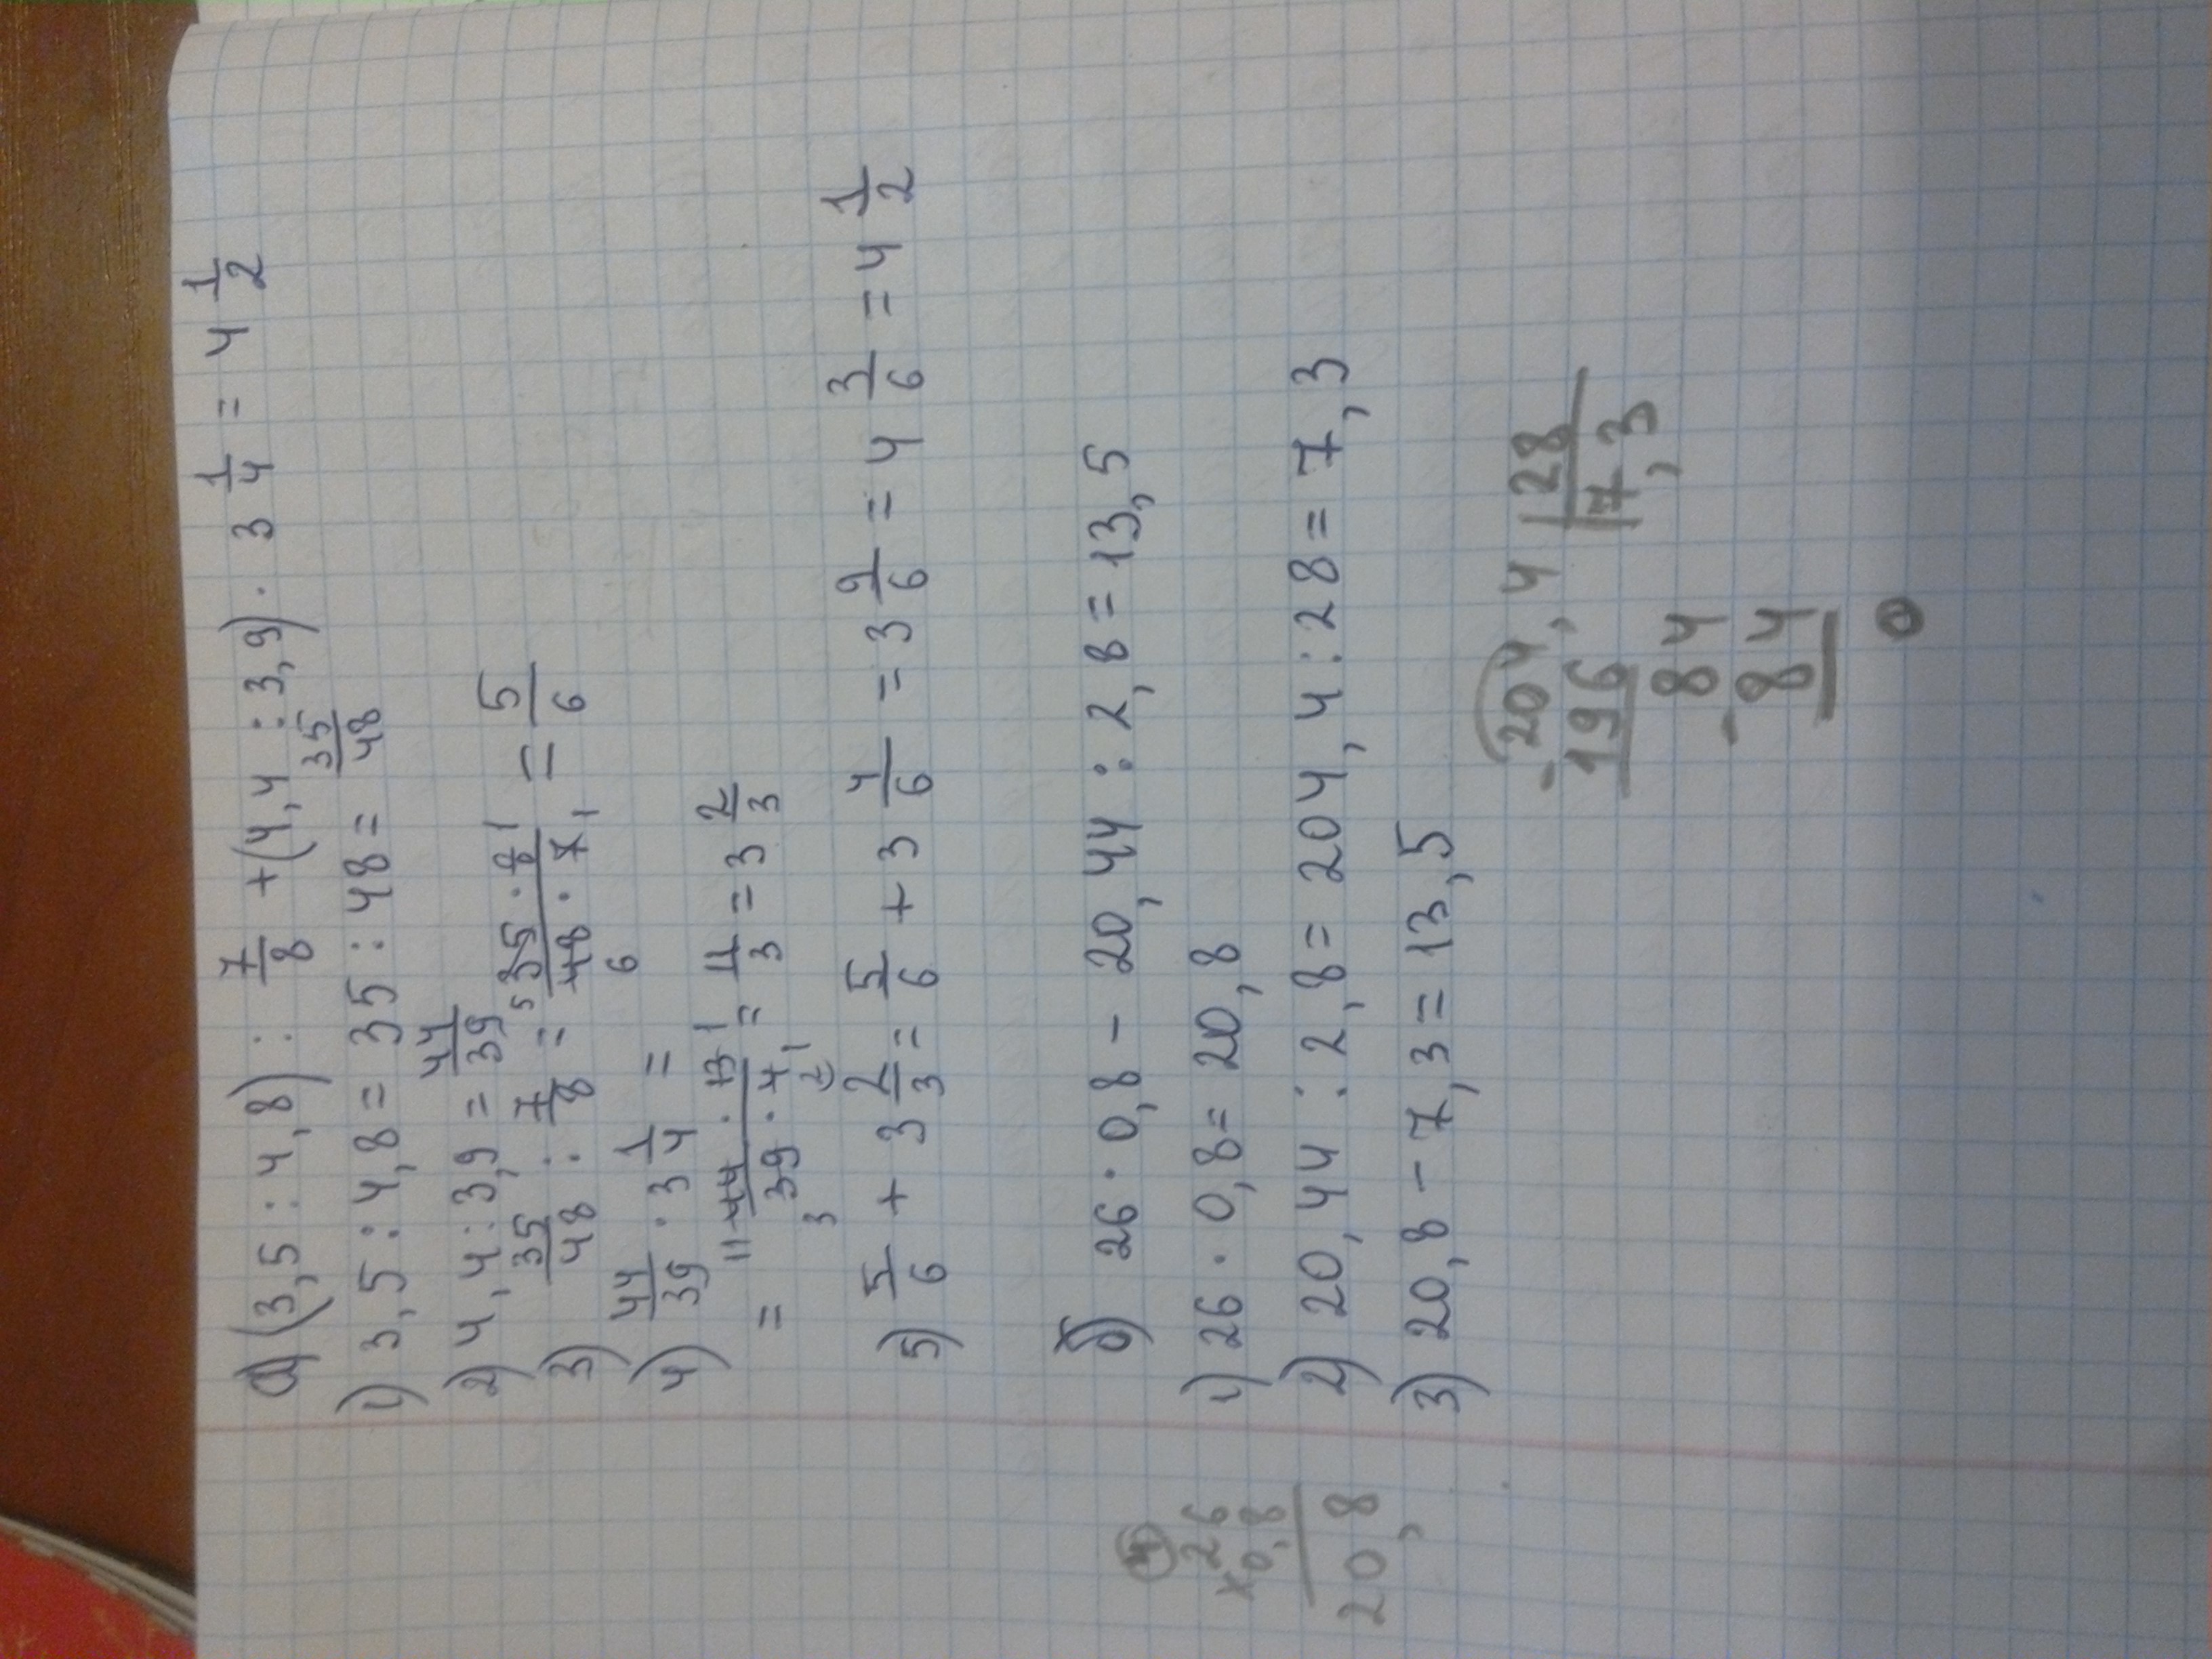 а) (3,5 : 4,8) : 7/8 + (4,4 : 3,9) · 3 1/4 = 4 1/2
1) 3,5 : 4,8 = 35 : 48 = 35/48
2) 4,4 : 3,9 = 44/39
3) 35/48 : 7/8 = 5 35 · 8 1 / 48 · 7 1 = 5/6
6
4) 44/39 · 3 1/4 =
= 11 44 · 13 1 / 39 · 4 1 = 11/3 = 3 2/3
3
5) 5/6 + 3 2/3 (2 = 5/6 + 3 4/6 = 3 9/6 = 4 3/6 = 4 1/2
б) 26 · 0,8 - 20,44 : 2,8 = 13,5
1) 26 · 0,8 = 20,8
2) 20,44 : 2,8 = 204,4 : 28 = 7,3
3) 20,8 - 7,3 = 13,5
4
26
×
0,8
20,8
-204,4 28
196 7,3
84
-
84
0